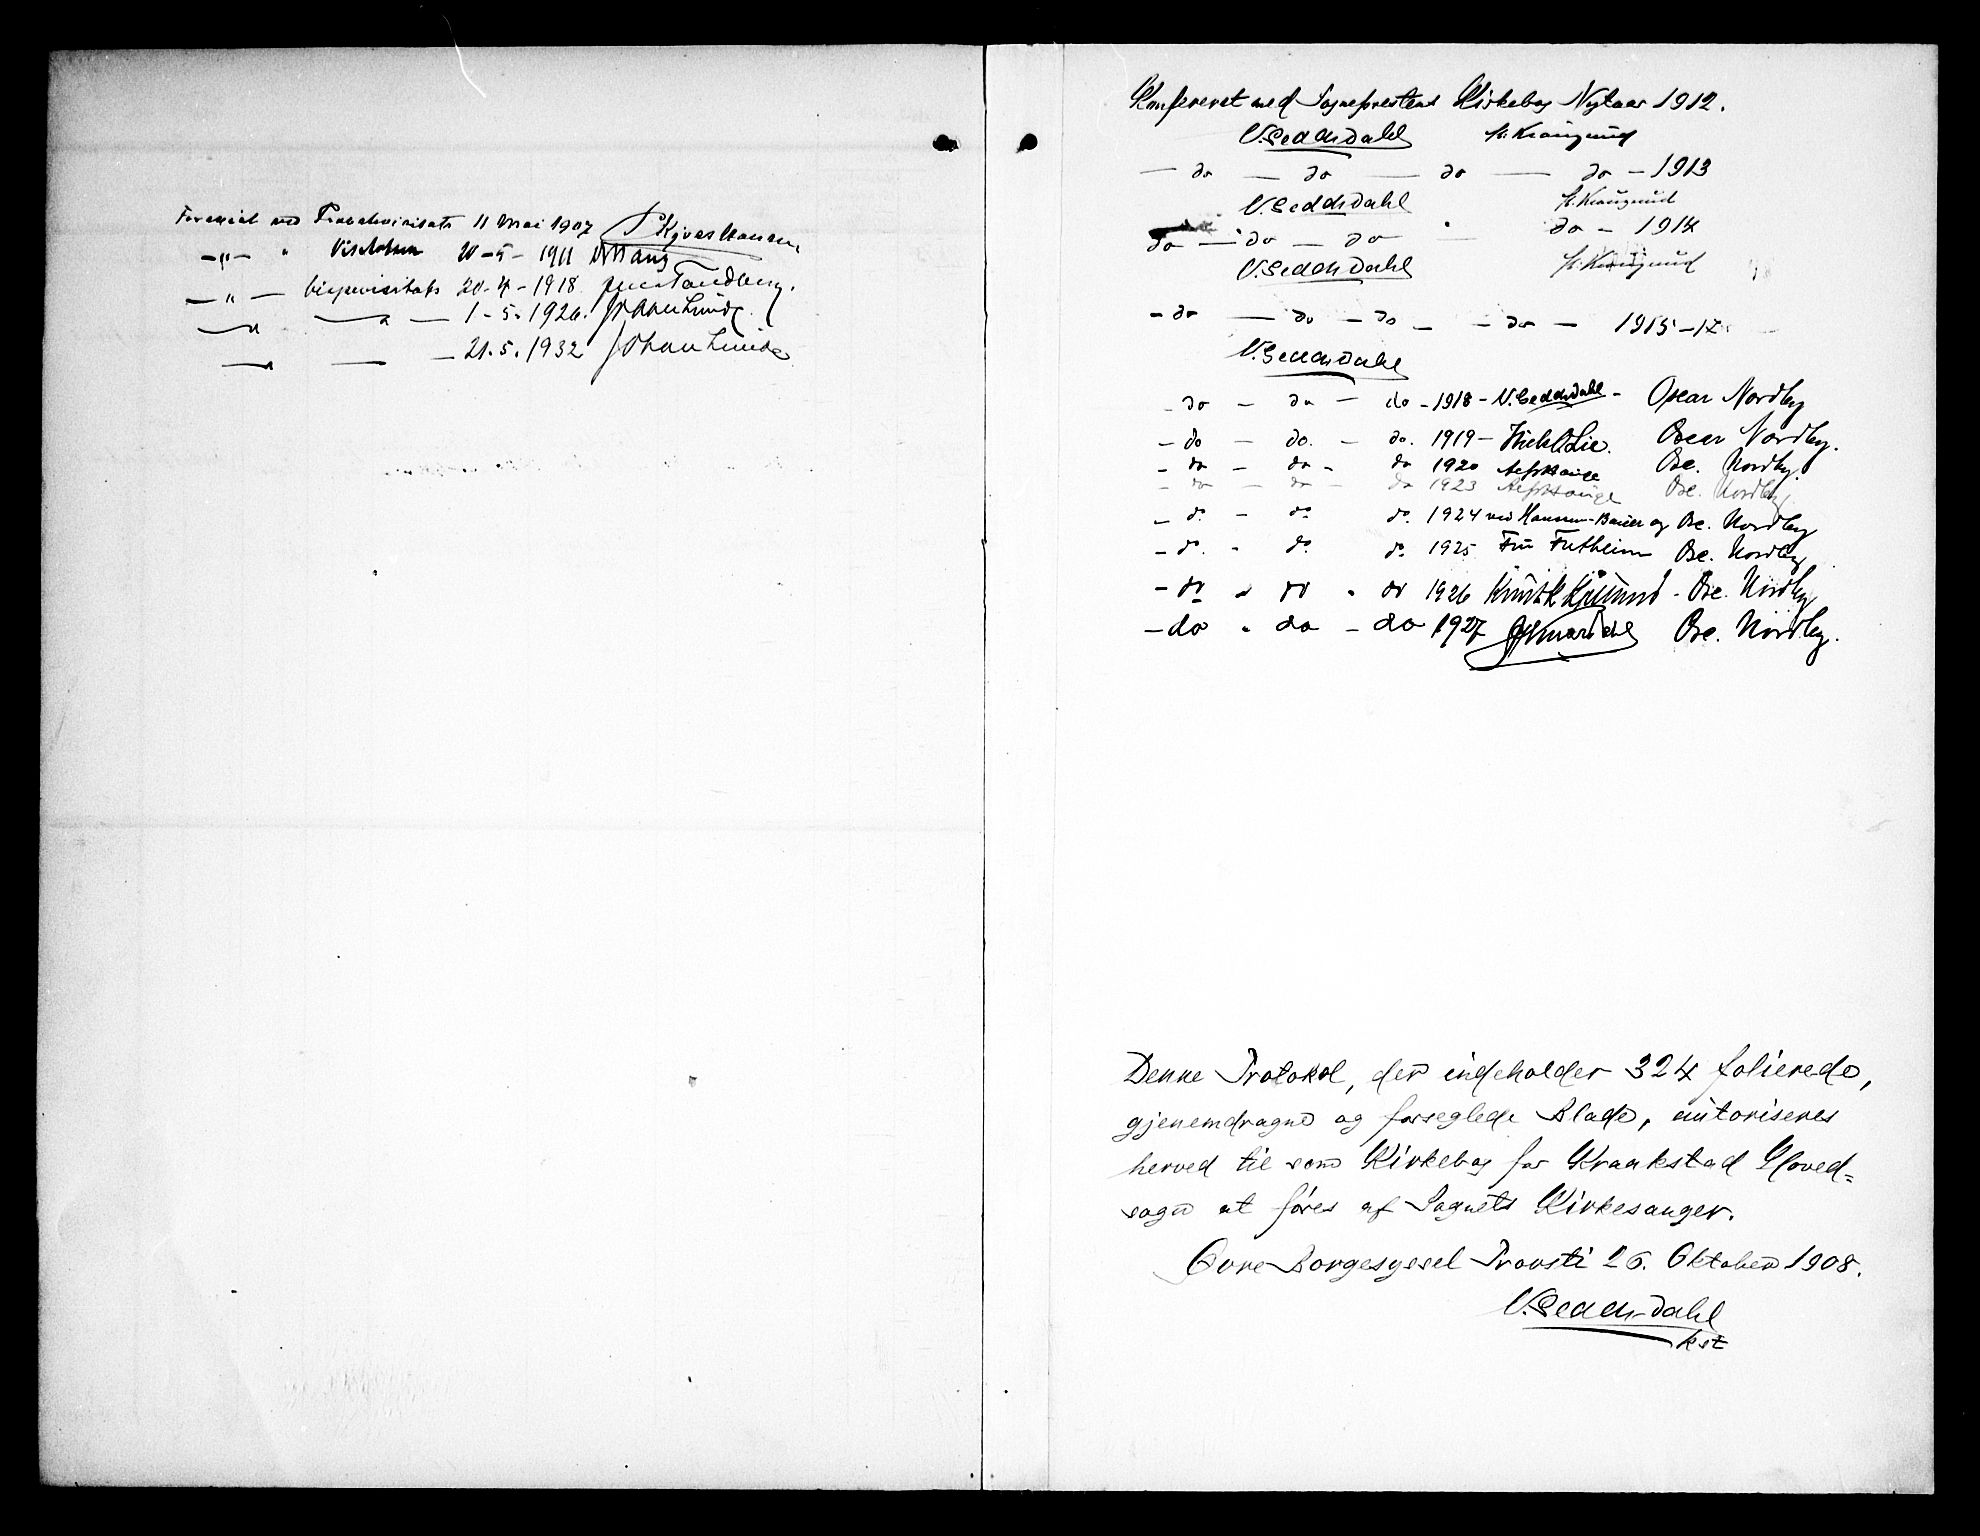 Forevist ved Provstevisitats 11 Mai 1907
-"- " Visitatsen 20-5-1911
-"- bispevisitats 20-4-1918 Jens Tandberg.
-"- -"- 1-5-1926. Johan Lunde.
-"- -"- 21.5.1932 Johan Lunde
Konfereret med Sogneprestens Kirkebog Nytaar 1912.
- do - do - do - do - 1913
do - do - do - do - 1914
- do - do - do - - do - 1915-17
- do - do - do - 1918 - Oscar Nordby
- do - do. - do. 1919 - Lie. Oscar Nordby.
- do - do - do 1920 Osc. Nordby.
- do - do - do 1923 Osc. Nordby
- do - do do. 1924 ved Hansen-Bauer og Osc. Nordby
- do. " do. do 1925 Osc. Nordby
- do " do " do 1926 - Osc. Nordby
- do " do - do 1927 Osc. Nordby.
Denne Protokol, der indeholder 324 folierede,
gjennemdragne og forseglede Blade, autoriseres
herved til som Kirkebog for Kraakstad Hoved-
sogn at føres af Sognets Kirkesanger.
Øvre Borgesyssel Provsti 26. Oktober 1908.
kst